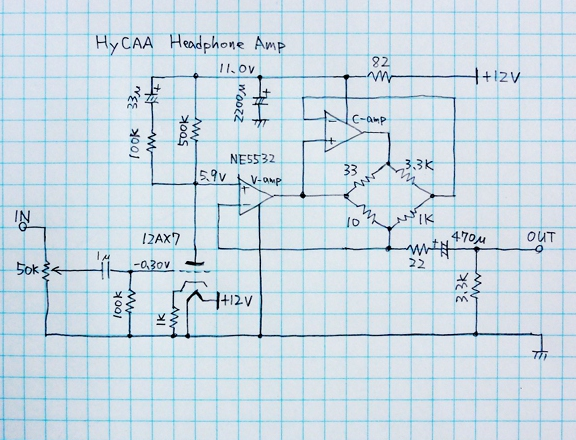 HyCAA Headphone Amp
11.0V
82
+12V
33μ
+
2200μ
+
100K
500K
C-amp
-
+
NE5532
V-amp
5.9V
+
-
33
3.3K
10
1K
IN
12AX7
50K
1μ
-0.30V
470μ
+
OUT
22
+12V
100K
1K
3.3K